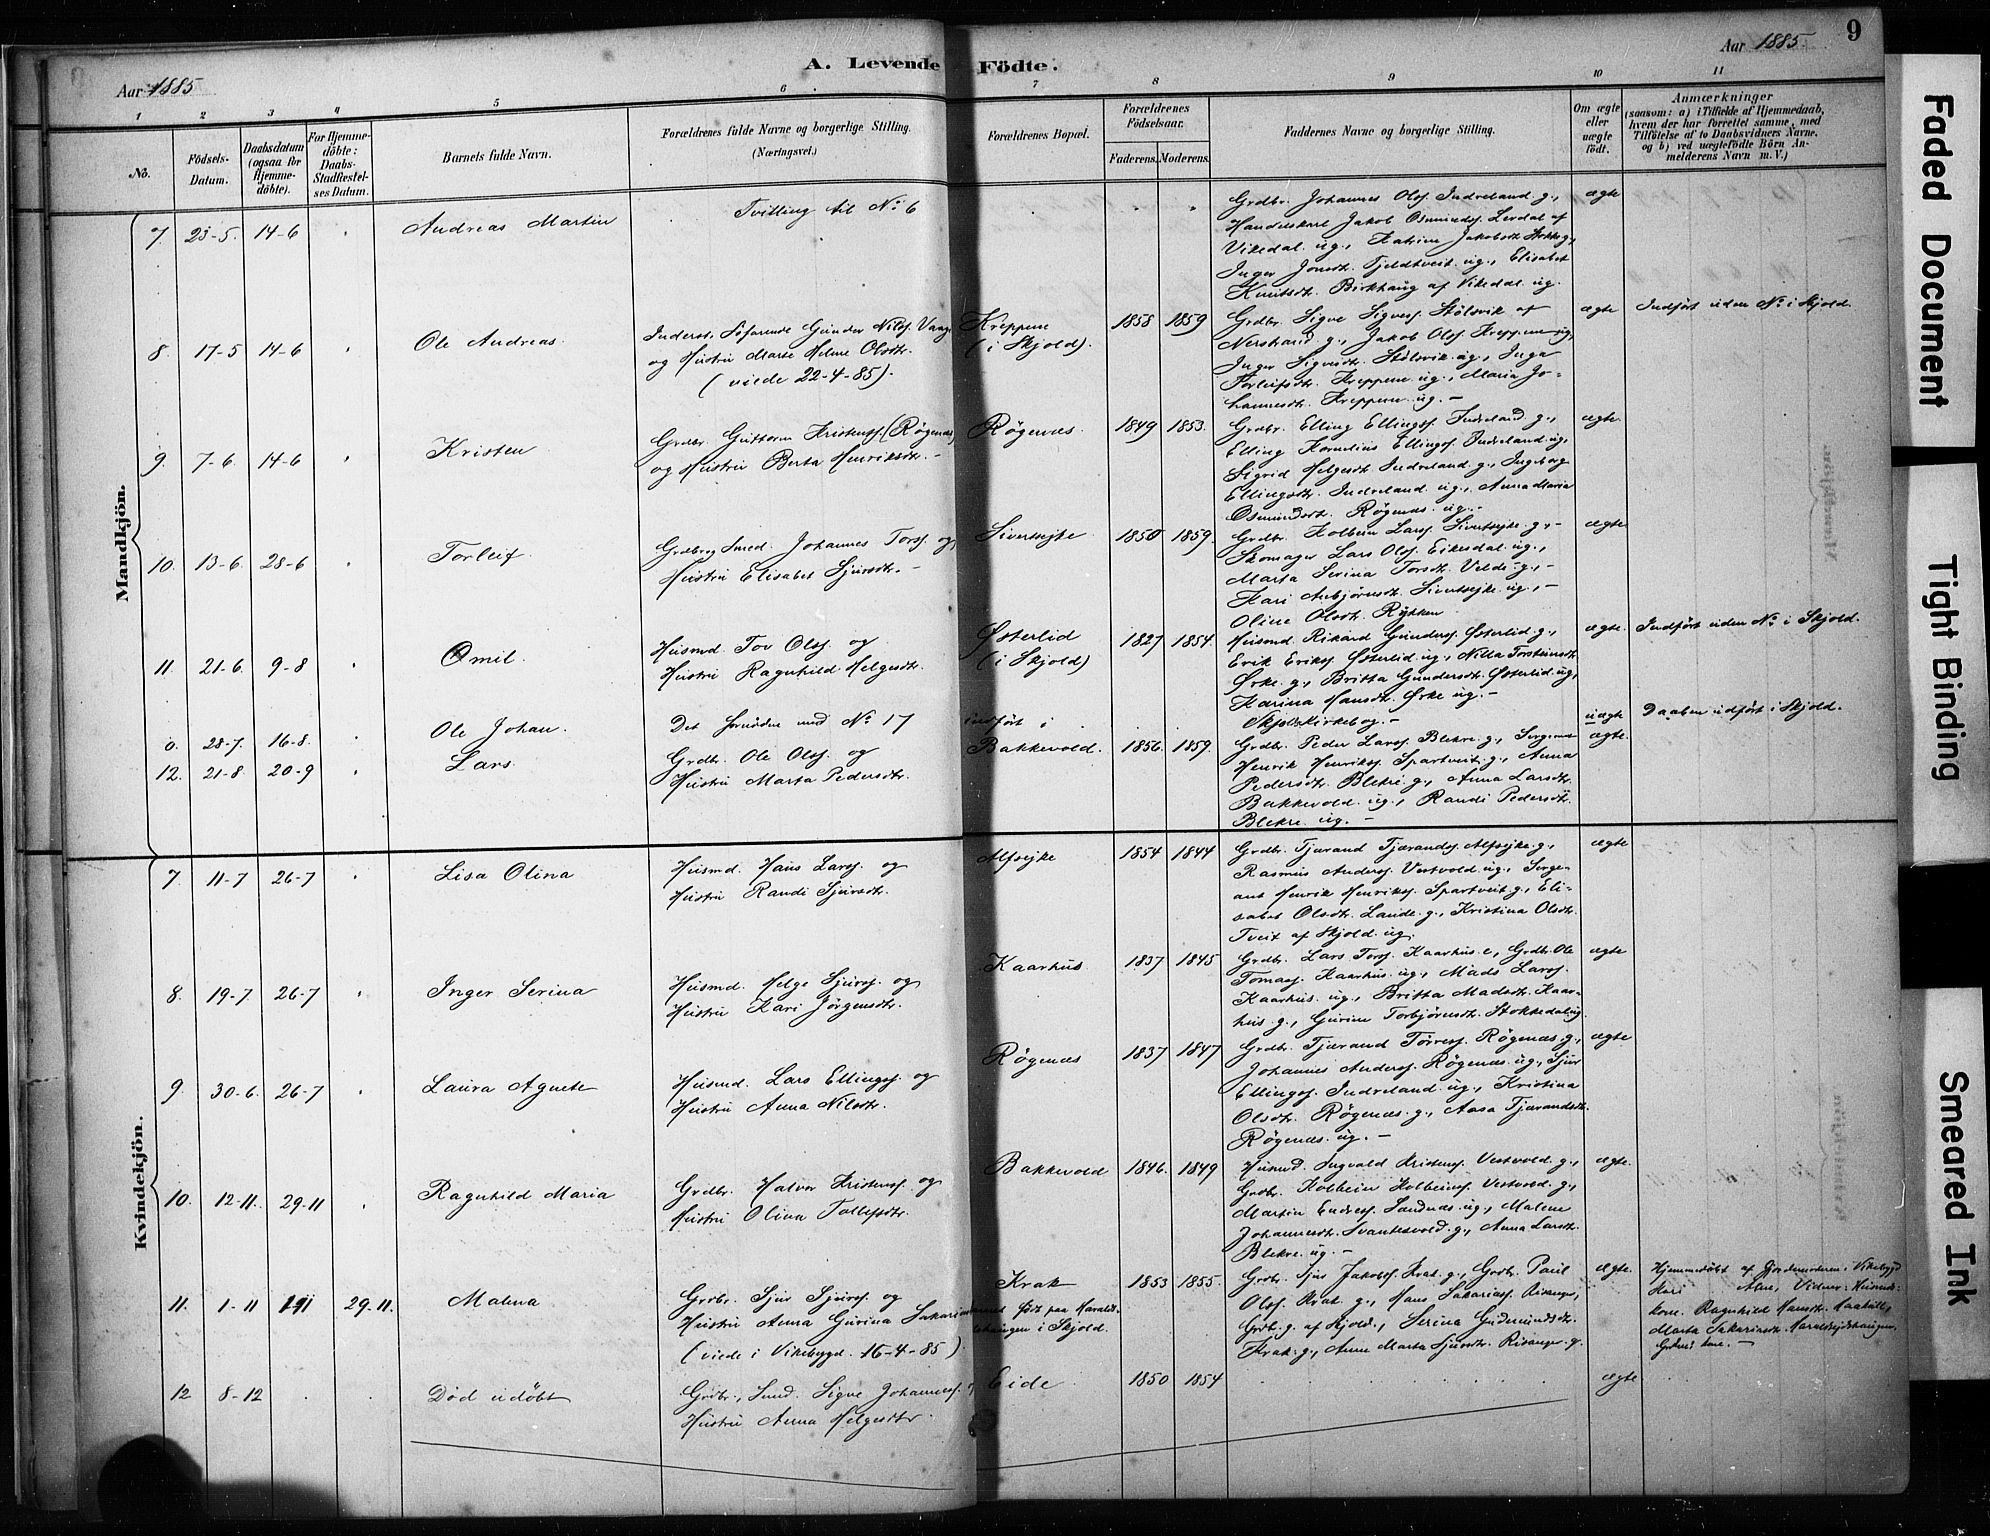 9
Aar 1885
A. Levende Födte.
Aar 1885
1 2 3 4 5 6 7 8 9 10 11
No.
Födsels-Datum.
Daabsdatum (ogsaa for Hjemmedöbte).
For Hjemmedöbte: Daabs-Stadfæstelses Datum.
Barnets fulde Navn.
Forældrenes fulde Navne og borgerlige Stilling.
(Næringsvei.)
Forældrenes Bopæl.
Forældrenes Födselsaar.
Faderens. Moderens.
Faddernes Navne og borgerlige Stilling.
Om ægte eller uægte födt.
Anmærkninger
(saasom: a) i Tilfælde af Hjemmedaab,
hvem der har forrettet samme, med
Tilföielse af to Daabsvidners Navne,
og b) ved uægtefödte Börn Anmelderens Navn m. V.)
Mandkjön.
7. 23-5. 14-6 Andreas Martin Tvilling til No 6
Grdbr. Johannes Olss. Indreland g., ægte
Handelskarl Jakob Osmunds. Lerdal af
Vikedal ug., Katrine Jakobsdt. Stokke g.,
Inger Jonsdt. Tjeldtveit ug., Elisabet
Knutsdt. Birkhaug af Vikedal ug.
8. 17-5 14-6 Ole Andreas.
Inderst, Söfarende Gunder Nilss. Vaage
og Hustru Marte Helene Olsdtr.
(viede 22-4-85).
Kreppene
(i Skjold).
1858 1859
Grdbr. Sigve Sigvess. Stölsvik af
Nerstrand g., Jakob Olss. Kreppene ug.,
Inger Sigvesdt. Stölsvik ug., Inga
Torleifsdt. Kreppene ug., Maria Johannesdt. Kreppene ug. -
ægte Indfört uden No i Skjold.
9. 7-6. 14-6 Kristen
Grdbr. Guttorm Kristenss. (Røgenæs)
og Hustru Berta Henriksdtr. -
Røgenæs. 1849 1853.
Grdbr. Elling Ellingss. Indreland g.,
Elling Kornelius Ellingss. Indreland ug.,
Sigrid Helgesdt. Indreland g., Ingeborg
Ellingsdtr. Indreland ug., Anna Maria
Osmundsdt. Røgenæs. ug. -
ægte.
10. 13-6. 28-6 Torleif
Grdbr og Smed Johannes Torss. og
Hustru Elisabet Sjursdtr. -
Sivertsejte 1850 1859
Grdbr. Kolbein Larss. Sivertsejte g., -
Skomager Lars Olss. Eikesdal ug.,
Marta Serina Torsdt. Velde g., -
Kari Aubjörnsdt. Sivertsejte ug., -
Oline Olsdt. Rykken
ægte
11. 21-6. 9-8 Omil.
Husmd. Tov Olss. og
Hustru Ragnhild Helgesdt.
Østerlid
(i Skjold)
1827 1854.
Husmd. Rikard Gunderss. Østerlid g.,
Erik Erikss. Østerlid ug., Nilla Torsteinsdt.
Ørke. g., Britta Gundersdt. Østerlid ug.,
Karina Hansdt. Ørke ug. -
ægte. Indfört uden No i Skjold.
0. 28-7. 16-8. Ole Johan. Det fornödne med No 17 indfört i Skjolds Kirkebog. -
uægte Daaben udfört i Skjold.
12. 21-8 20-9 Lars.
Grdbr. Ole Olss. og
Hustru Marta Pedersdtr.
Bakkevold. 1856. 1859.
Grdbr. Peder Larss. Blekre g., Sergeant
Henrik Henrikss. Spartveit g., Anna
Pedersdt. Blekre g., Anna Larsdt.
Bakkevold ug., Randi Pedersdt.
Blekre ug. -
ægte.
Kvindekjön.
7. 11-7 26-7 Lisa Olina
Husmd. Hans Larss. og
Hustru Randi Sjursdtr.
Alfsejke 1854 1844
Grdbr. Tjærand Tjærandss. Alfsejke g.,
Rasmus Anderss. Vestvold ug., Sergeant Henrik Henrikss. Spartveit g., Elisabet Olsdt. Lande. g., Kristina Olsdt.
Tveit af Skjold ug.
ægte
8. 19-7 26-7 Inger Serina
Husmd. Helge Sjurss. og
Hustru Kari Jörgensdtr.
Kaarhus 1837 1845
Grdbr. Lars Torss. Kaarhus e., Grdbr. Ole
Tomass. Kaarhus ug., Mads Larss.
Kaarhus. ug., Britta Madsdt. Kaarhus g., Gurine Torbjörnsdt. Stokkedal ug.
ægte
9. 30-6. 26-7 Laura Agnete
Husmd. Lars Ellingss. og
Hustru Anna Nilsdtr.
Røgenæs 1837 1847
Grdbr. Tjærand Törress. Røgenæs g.,
Johannes Anderss. Røgenæs ug., Sjur
Ellingss. Indreland ug., Kristina
Olsdt. Røgenæs. g., Aasa Tjærandsdt.
Røgenæs. ug. -
ægte
10. 12-11. 29-11 Ragnhild Maria
Grdbr. Halvor Kristenss. og
Hustru Olina Tollefsdtr.
Bakkevold 1846. 1849
Husmd. Ingvald Kristenss. Vestvold g.,
Grdbr. Kolbein Kolbeinss. Vestvold g.,
Martin Endress. Sandnæs ug., Malene
Johannesdt. Svantesvold. g., Anna Larsdt.
Blekre. ug. -
ægte.
11. 1-11 29-11. Malena
Grdbr. Sjur Sjurss. og
Hustru Anna Gurina
(viede i Vikebygd. 16-4-85)
Krak
födt paa
i Skjold.
1853 1855.
Grdbr. Sjur Jakobss. Krak g., Grdbr. Paul
Olss. Krak g., Hans Sakariass.
Grdb. g. af Skjold, Serina Gudmundsdt.
Krak g., Anne Marta Sjursdt. g.
ægte. Hjemmedöbt af Gjordemoderen i Vikebygd
Kari Alne, Vidner: Husmdskone Ragnhild Hansdt.
Marta Sakariasdt.
12 8-12 Död udöbt
Grdbr., Smd. Sigve Johanness. og
Hustru Anna Helgesdtr.
Eide 1850 1854 ægte
Faded Document
Tight Binding
Smeared Ink